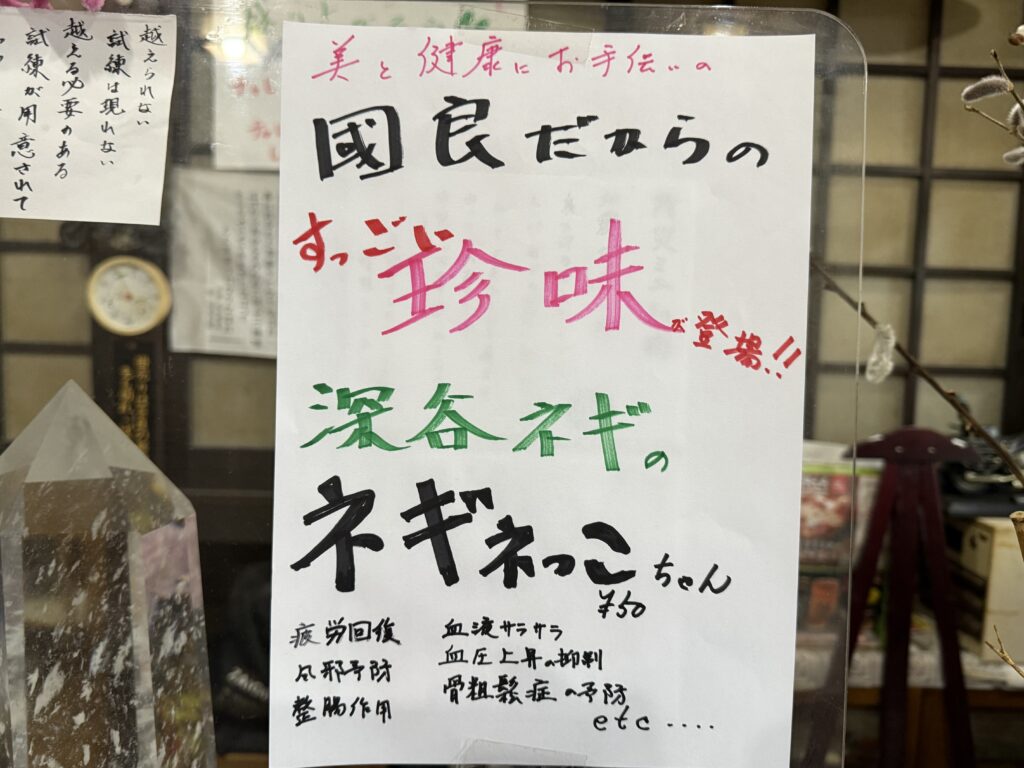 美と健康にお手伝いの
國良だからの
すっごい珍味が登場!!
深谷ネギの
ネギネっこちゃん
¥50
疲労回復
風邪予防
整腸作用
血液サラサラ
血圧上昇の抑制
骨粗鬆症の予防
etc....
越えられない
試練は現れない
越える必要のある
試練が用意されて